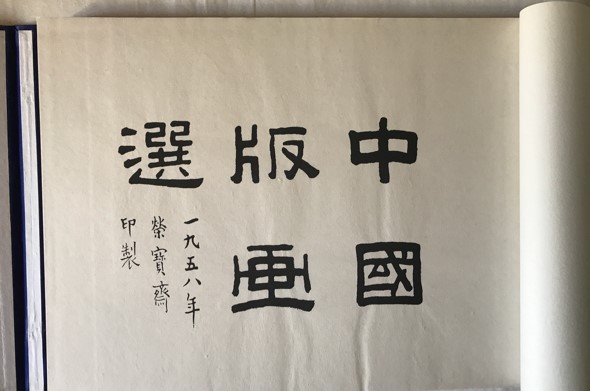 中國
版画
選
一九五八年
榮寶齋
印製